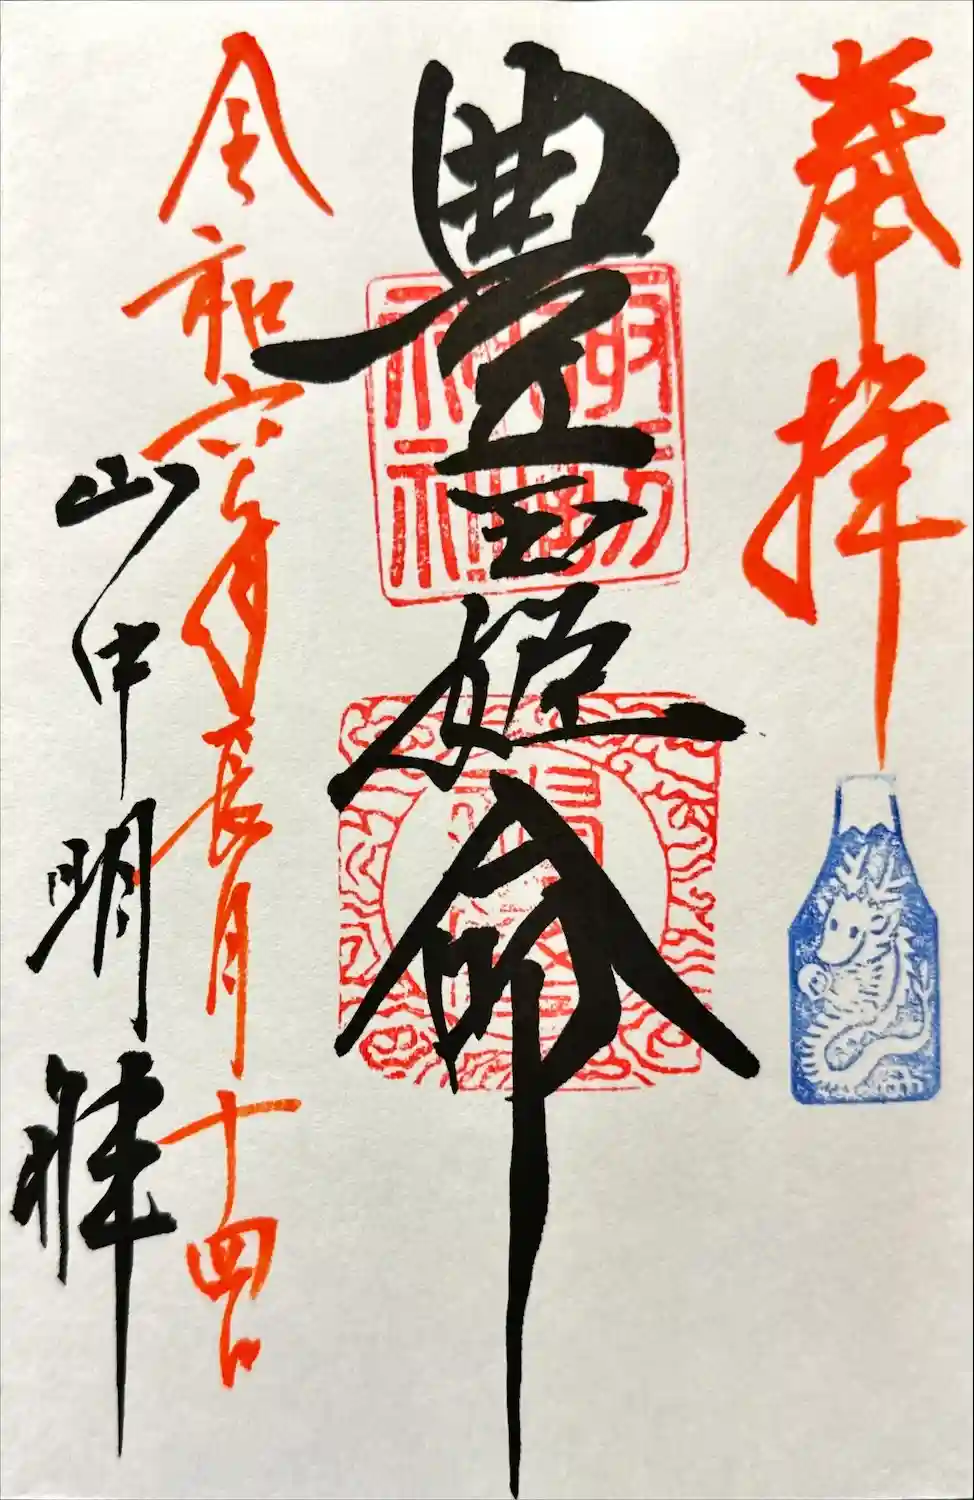 奉拝
豊玉姫命
令和六年長月十四日
山中明